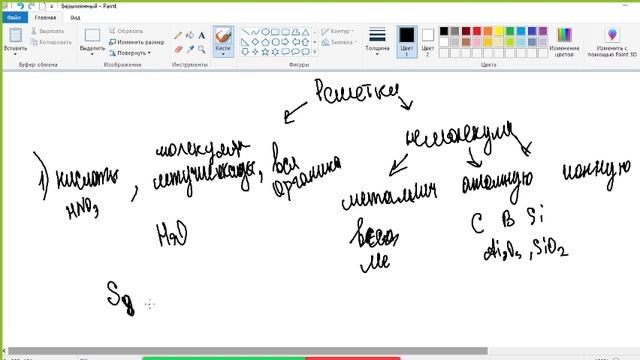 Безымянный - Paint
Файл Главная Вид
Вставить Вырезать Копировать Буфер обмена
Выделить Обрезать Изменить размер Повернуть Изображение
Инструменты
Кисти
Контур Заливка Фигуры
Толщина
Цвет 1 Цвет 2 Цвета
Изменение цветов
Изменить с помощью Paint 3D
Решетки
немолекуля
молекуляр
1) кислоты, летучие, вся органика
HNO3
металлич атомную ионную
H2O
все Ме
C B Si
Al2O3, SiO2
S8